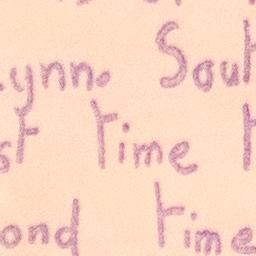 lynn. Sout
st time t
ond time